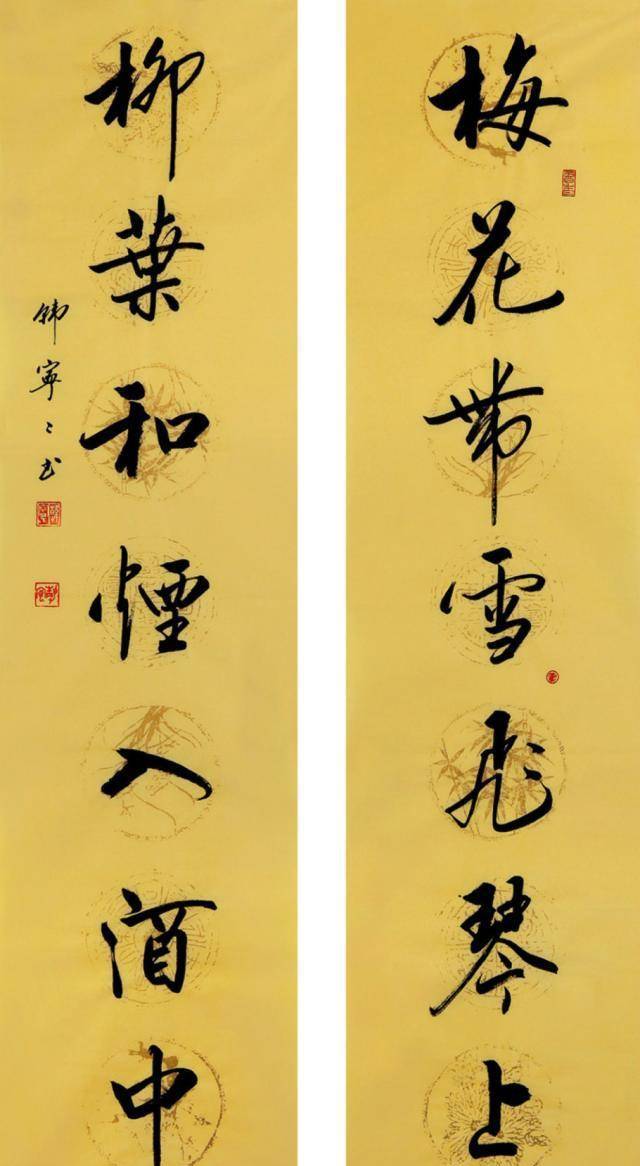 梅花帶雪飛琴上
柳葉和煙入酒中
韩寧〻书